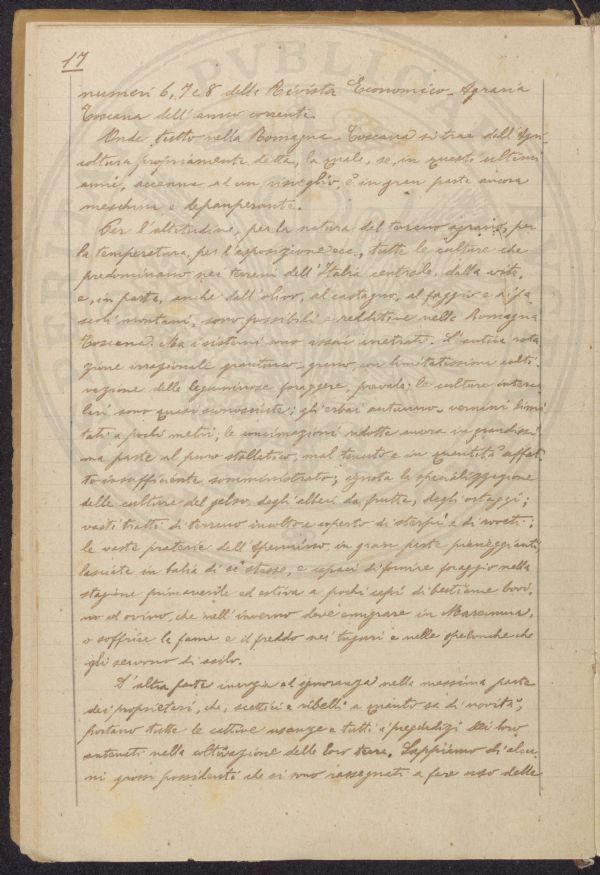 17
numeri 6, 7 e 8 della Rivista Economico-Agraria
Toscana dell'anno corrente.
Onde tutto nella Romagna-Toscana si trae dall'Agri-
coltura propriamente detta, la quale, se, in questi ultimi
anni, accenna ad un risveglio, è in gran parte ancora
meschina e depauperante.
Per l'altitudine, per la natura del terreno agrario, per
la temperatura, per l'esposizione ecc., tutte le culture che
predominano nei terreni dell'Italia centrale, dalla vite,
e, in parte, anche dall'olivo, al castagno, al faggio e ai pa-
scoli montani, sono possibili e redditive nella Romagna
Toscana. Ma i sistemi sono assai arretrati. L'antica rota-
zione irrazionale granturco-grano, con limitatissima colti-
vazione delle leguminose foraggere, prevale; le culture interca-
lari sono quasi sconosciute; gli erbai autunno-vernini limi-
tati a pochi metri; le concimazioni ridotte ancora in grandissi-
ma parte al puro stallatico, mal tenuto e in quantità affat-
to insufficiente somministrato; ignota la specializzazione
delle culture del gelso, degli alberi da frutta, degli ortaggi;
vasti tratti di terreno incolto e coperto di sterpi e di roveti;
le vaste praterie dell'Apennino, in gran parte pianeggianti,
lasciate in balìa di sè stesse, e capaci di fornire foraggio nella
stagione primaverile ed estiva a pochi capi di bestiame bovi-
no ed ovino, che nell'inverno deve emigrare in Maremma,
o soffrire la fame e il freddo nei tuguri e nelle spelonche che
gli servono di asilo.
D'altra parte inerzia ed ignoranza nella massima parte
dei proprietari, che, scettici e ribelli a quanto sa di novità,
portano tutte le cattive usanze e tutti i pregiudizi dei loro
antenati nella coltivazione delle loro terre. Sappiamo di alcu-
ni grossi possidenti che si sono rassegnati a fare uso delle